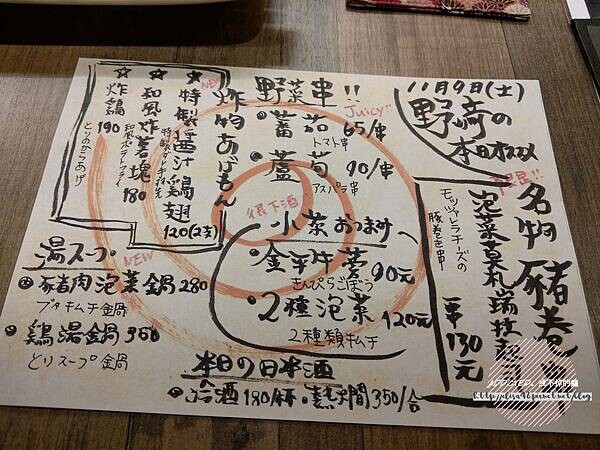 11月9日(土)
野崎の
本日オススメ
名物豬卷串
泡菜莫札瑞拉起司
モッツァレラチーズの
豚巻き串
一串130元
野菜串!!
Juicy!!
蕃茄 65/串
トマト串
蘆筍 90/串
アスパラ串
很下酒
小菜おつまみ
金平牛蒡 90元
きんぴらごぼう
2種泡菜 120元
2種類キムチ
炸物あげもん
NEW
★特製醬汁鶏翅 120(2支)
★和風炸薯塊 180
和風ポテトフライ
★炸鶏 190
とりのからあげ
湯スープ
NEW
豬肉泡菜鍋 280
ブタキムチ鍋
鶏湯鍋 350
とりスープ鍋
本日の日本酒
冷酒180/杯・熱燗350/合
ADDICTED. 戒不你的癮